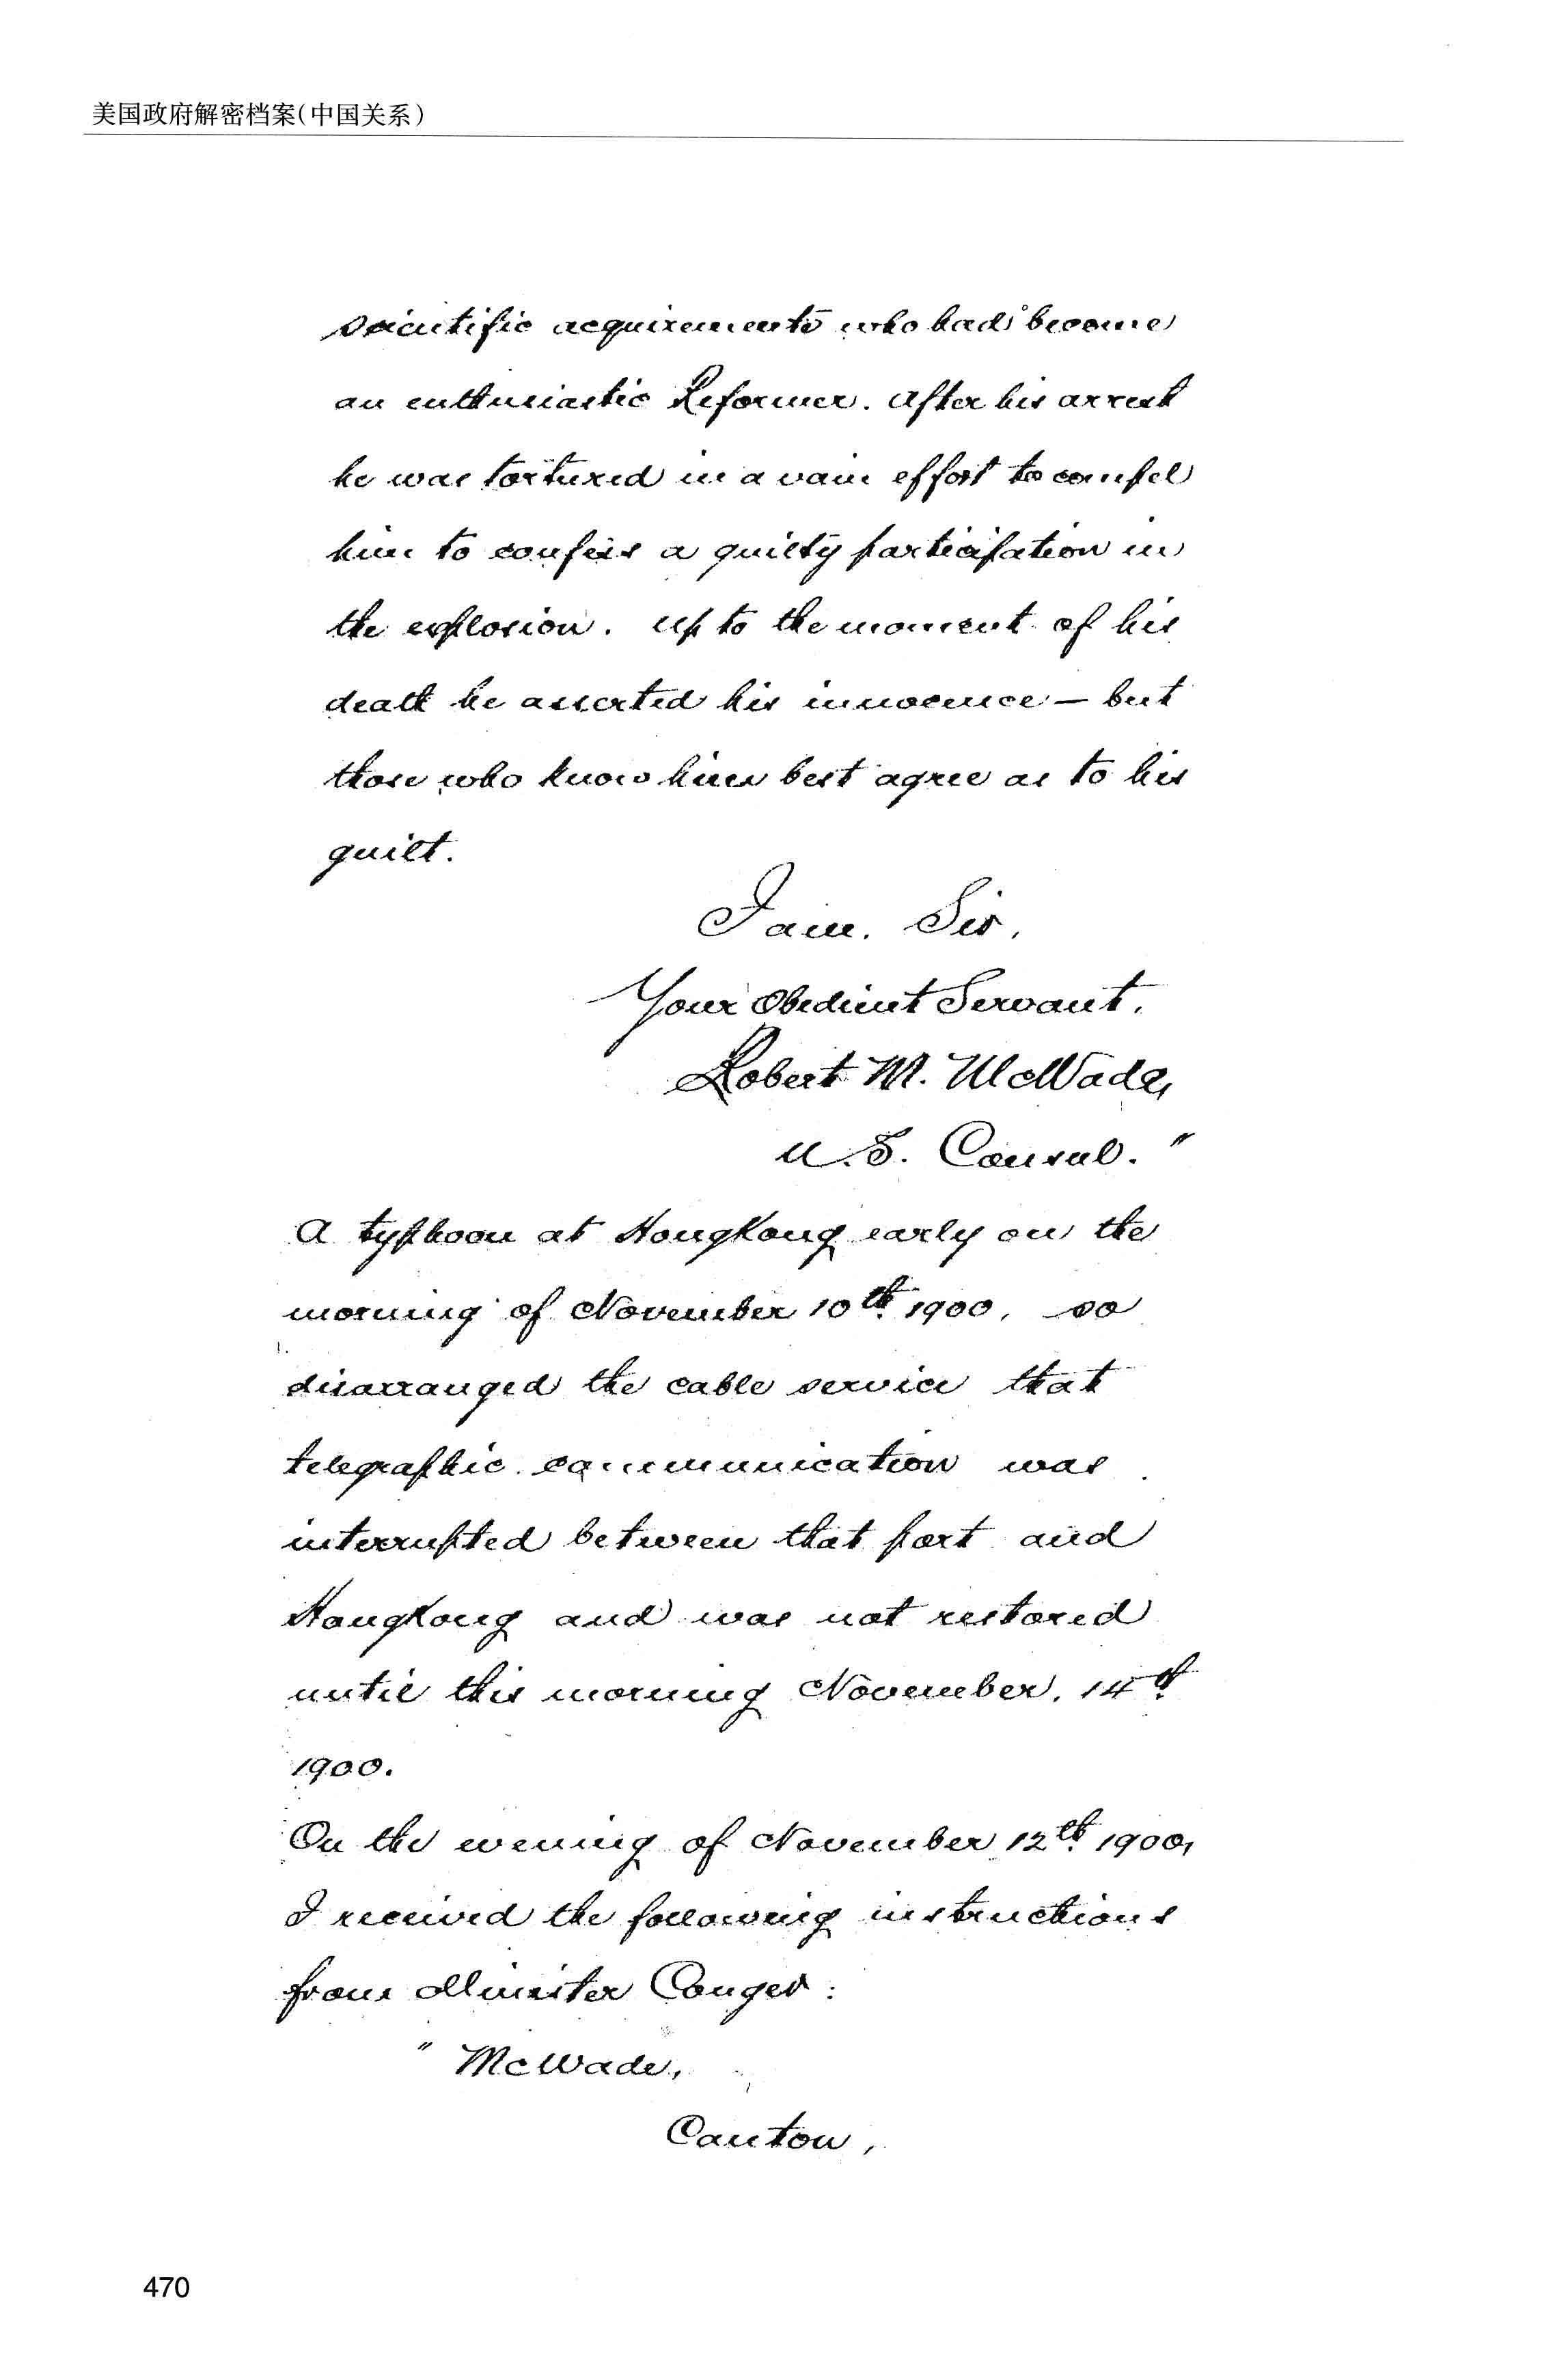 美国政府解密档案(中国关系)
scientific acquirements who had become
an enthusiastic Reformer. After his arrest
he was tortured in a vain effort to compel
him to confess a guilty participation in
the explosion. Up to the moment of his
death he asserted his innocence — but
those who know him best agree as to his
guilt.
I am, Sir,
Your Obedient Servant,
Robert M. McWade,
U.S. Consul."
A typhoon at HongKong early on the
morning of November 10th 1900, so
disarranged the cable service that
telegraphic communication was
interrupted between that port and
HongKong and was not restored
until this morning November, 14th
1900.
On the evening of November 12th 1900,
I received the following instructions
from Minister Conger:
" McWade,
Canton,
470